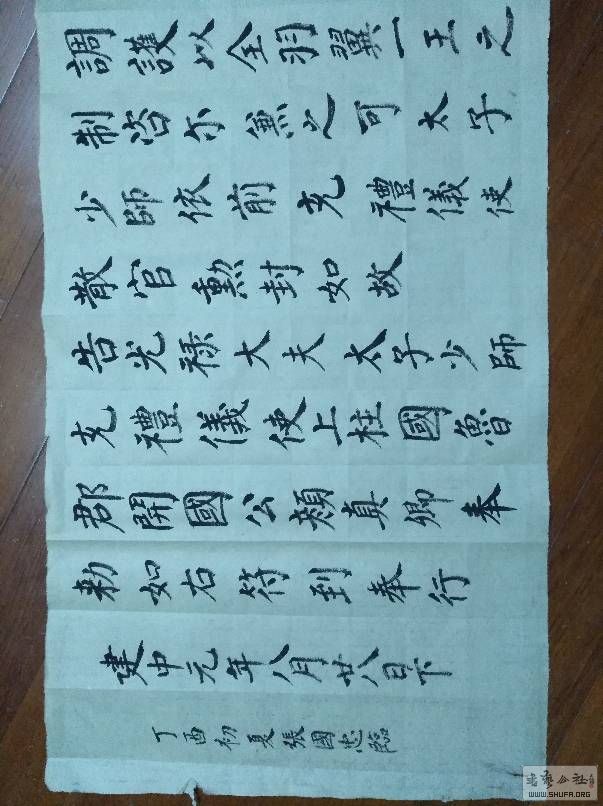 調護以全羽翼一王之
制咨尔兼之可太子
少師依前充禮儀使
散官勳封如故
告光禄大夫太子少師
充禮儀使上柱國魯
郡開國公顔真卿奉
勅如右符到奉行
建中元年八月廿八日下
丁酉初夏張國忠臨
WWW.SHUFA.ORG